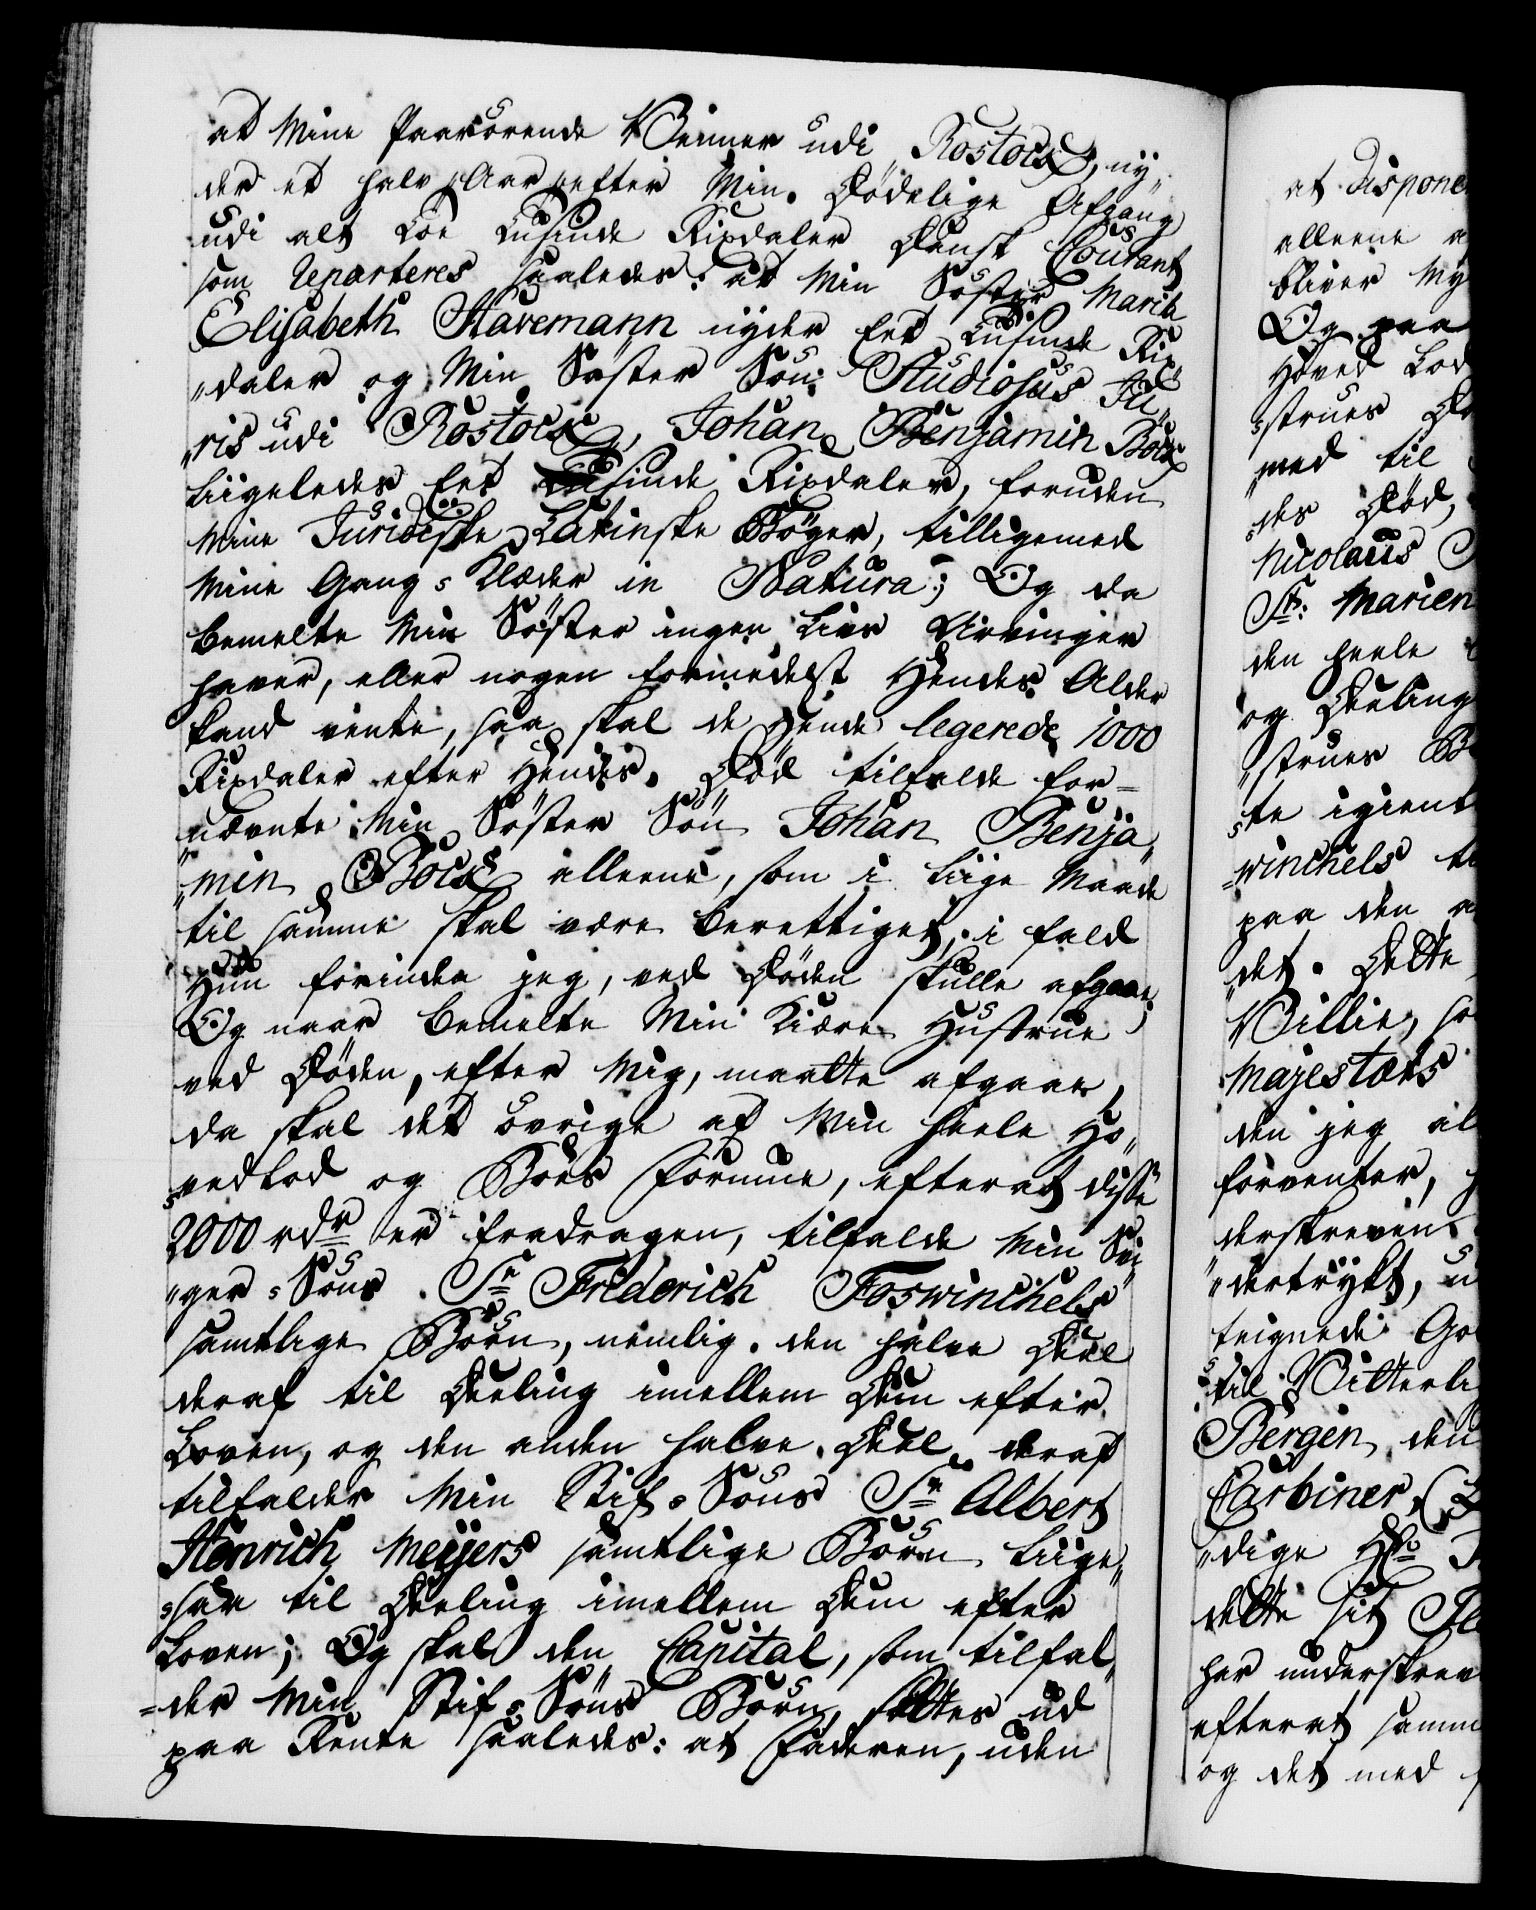 at Mine Paarörende Venner udi Rostock, ny-
der et halv Aar efter Min Dödelige Afgang
udi alt Toe Tusinde Rixdaler Dansk Courant
som reparteres saaledes: at Min Söster Maria
Elisabeth Havemann nyder Eet Tusinde Rix
"daler og Min Söster Sön Studiosus Ju,,
"ris udi Rostock, Johan Benjamin Bock
liigeledes Eet Tusinde Rixdaler, foruden
Mine Juridiske og Latinske Böger, tilligemed
Mine Gang-Klæder in Natura; Og da
bemelte Min Söster ingen Livs Arvinger
haver, eller nogen formedelst Hendes Alder
kand vente, saa skal de Hende legerede 1000
Rixdaler efter Hendes Död tilfalde for-
nævnte Min Söster Sön Johan Benja,,
"min Bock alleene, som i liige Maade
til samme skal være berettiget, i fald
Hun forinden jeg, ved Döden skulle afgaae;
Og naar bemelte Min Kiære Hustrue
ved Döden, efter Mig, maatte afgaae,
da skal det övrige af Min heele Ho,,
vedlod og Boes Formue, efterat disse
2000 rdr er fradragen, tilfalde Min Svi,,
"ger-Söns Sr Friderich Foswinchels
samtlige Börn, nemlig den halve Deel
deraf til Deeling imellem Dem efter
Loven, og den anden halve Deel deraf
tilfalder Min Stif-Söns Sr Albert
Henrich Meyers samtlige Börn liige,,
saa til Deeling imellem Dem efter
Loven; Og skal den Capital, som tilfal,,
=der Min Stif-Söns Börn, settes ud
paa Rente saaledes: at Faderen, uden
at dispone
alleene a
bliver My
Og paa
Hoved Lod
strues D
med til
des Död,
Nicolaus
Sr: Marien
den heele
og Deeling
"strues B
te igient
winchels t
paa den a
det. Dette
Villie, so
Majestæts
den jeg al
forventer,
derskreven
"dertrykt, u
teignede Go
til Vitterli
Bergen den
Carbiner, (L
"dige H
dette sit
her underskrev
efterat samm
og det med